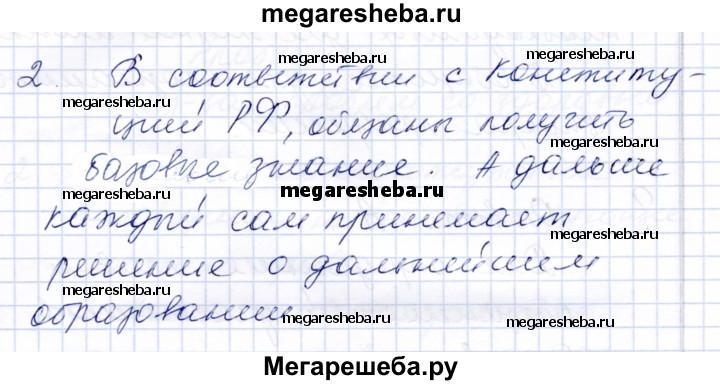 megaresheba.ru
megaresheba.ru
2. В соответствии с Конститу-
megaresheba.ru megaresheba.ru
цией РФ, обязаны получить
megaresheba.ru
базовые знание. А дальше
megaresheba.ru
каждый сам принемает
megaresheba.ru
решение о дальнейшем
megaresheba.ru
образовании
megaresheba.ru megaresheba.ru
Мегарешеба.ру